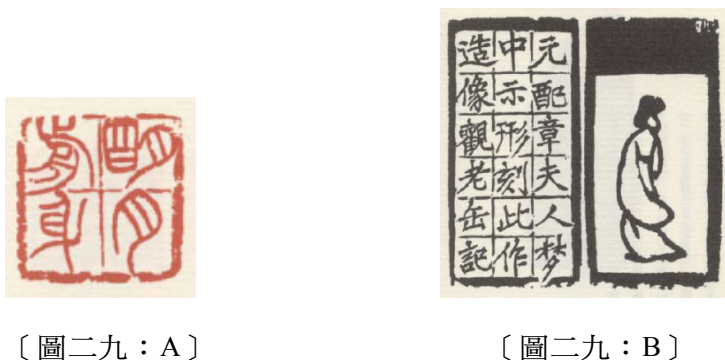 明月
前身
元配章夫人梦
中示形刻此作
造像觀老缶記
〔圖二九：A〕
〔圖二九：B〕